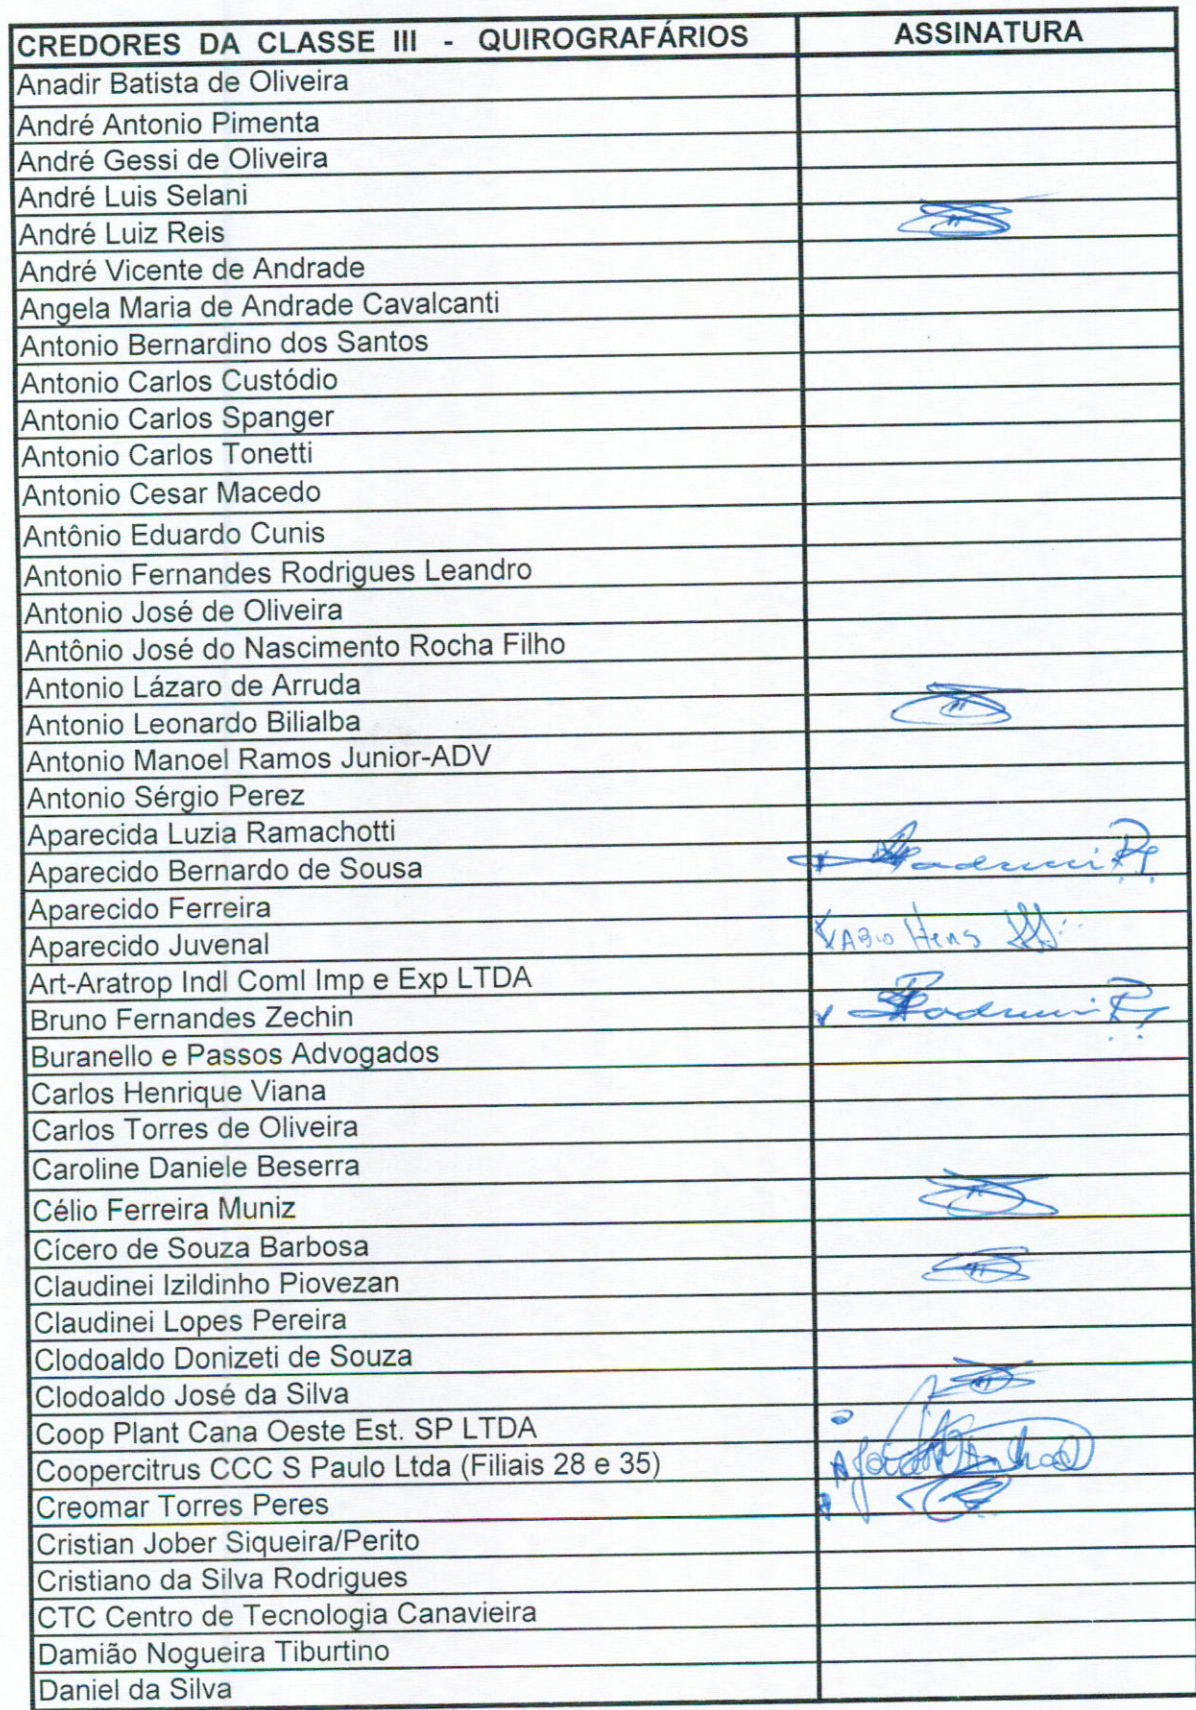 CREDORES DA CLASSE III - QUIROGRAFÁRIOS ASSINATURA
Anadir Batista de Oliveira
André Antonio Pimenta
André Gessi de Oliveira
André Luis Selani
André Luiz Reis
André Vicente de Andrade
Angela Maria de Andrade Cavalcanti
Antonio Bernardino dos Santos
Antonio Carlos Custódio
Antonio Carlos Spanger
Antonio Carlos Tonetti
Antonio Cesar Macedo
Antônio Eduardo Cunis
Antonio Fernandes Rodrigues Leandro
Antonio José de Oliveira
Antônio José do Nascimento Rocha Filho
Antonio Lázaro de Arruda
Antonio Leonardo Bilialba
Antonio Manoel Ramos Junior-ADV
Antonio Sérgio Perez
Aparecida Luzia Ramachotti
Aparecido Bernardo de Sousa
Aparecido Ferreira
Aparecido Juvenal
Art-Aratrop Indl Coml Imp e Exp LTDA
Bruno Fernandes Zechin
Buranello e Passos Advogados
Carlos Henrique Viana
Carlos Torres de Oliveira
Caroline Daniele Beserra
Célio Ferreira Muniz
Cícero de Souza Barbosa
Claudinei Izildinho Piovezan
Claudinei Lopes Pereira
Clodoaldo Donizeti de Souza
Clodoaldo José da Silva
Coop Plant Cana Oeste Est. SP LTDA
Coopercitrus CCC S Paulo Ltda (Filiais 28 e 35)
Creomar Torres Peres
Cristian Jober Siqueira/Perito
Cristiano da Silva Rodrigues
CTC Centro de Tecnologia Canavieira
Damião Nogueira Tiburtino
Daniel da Silva